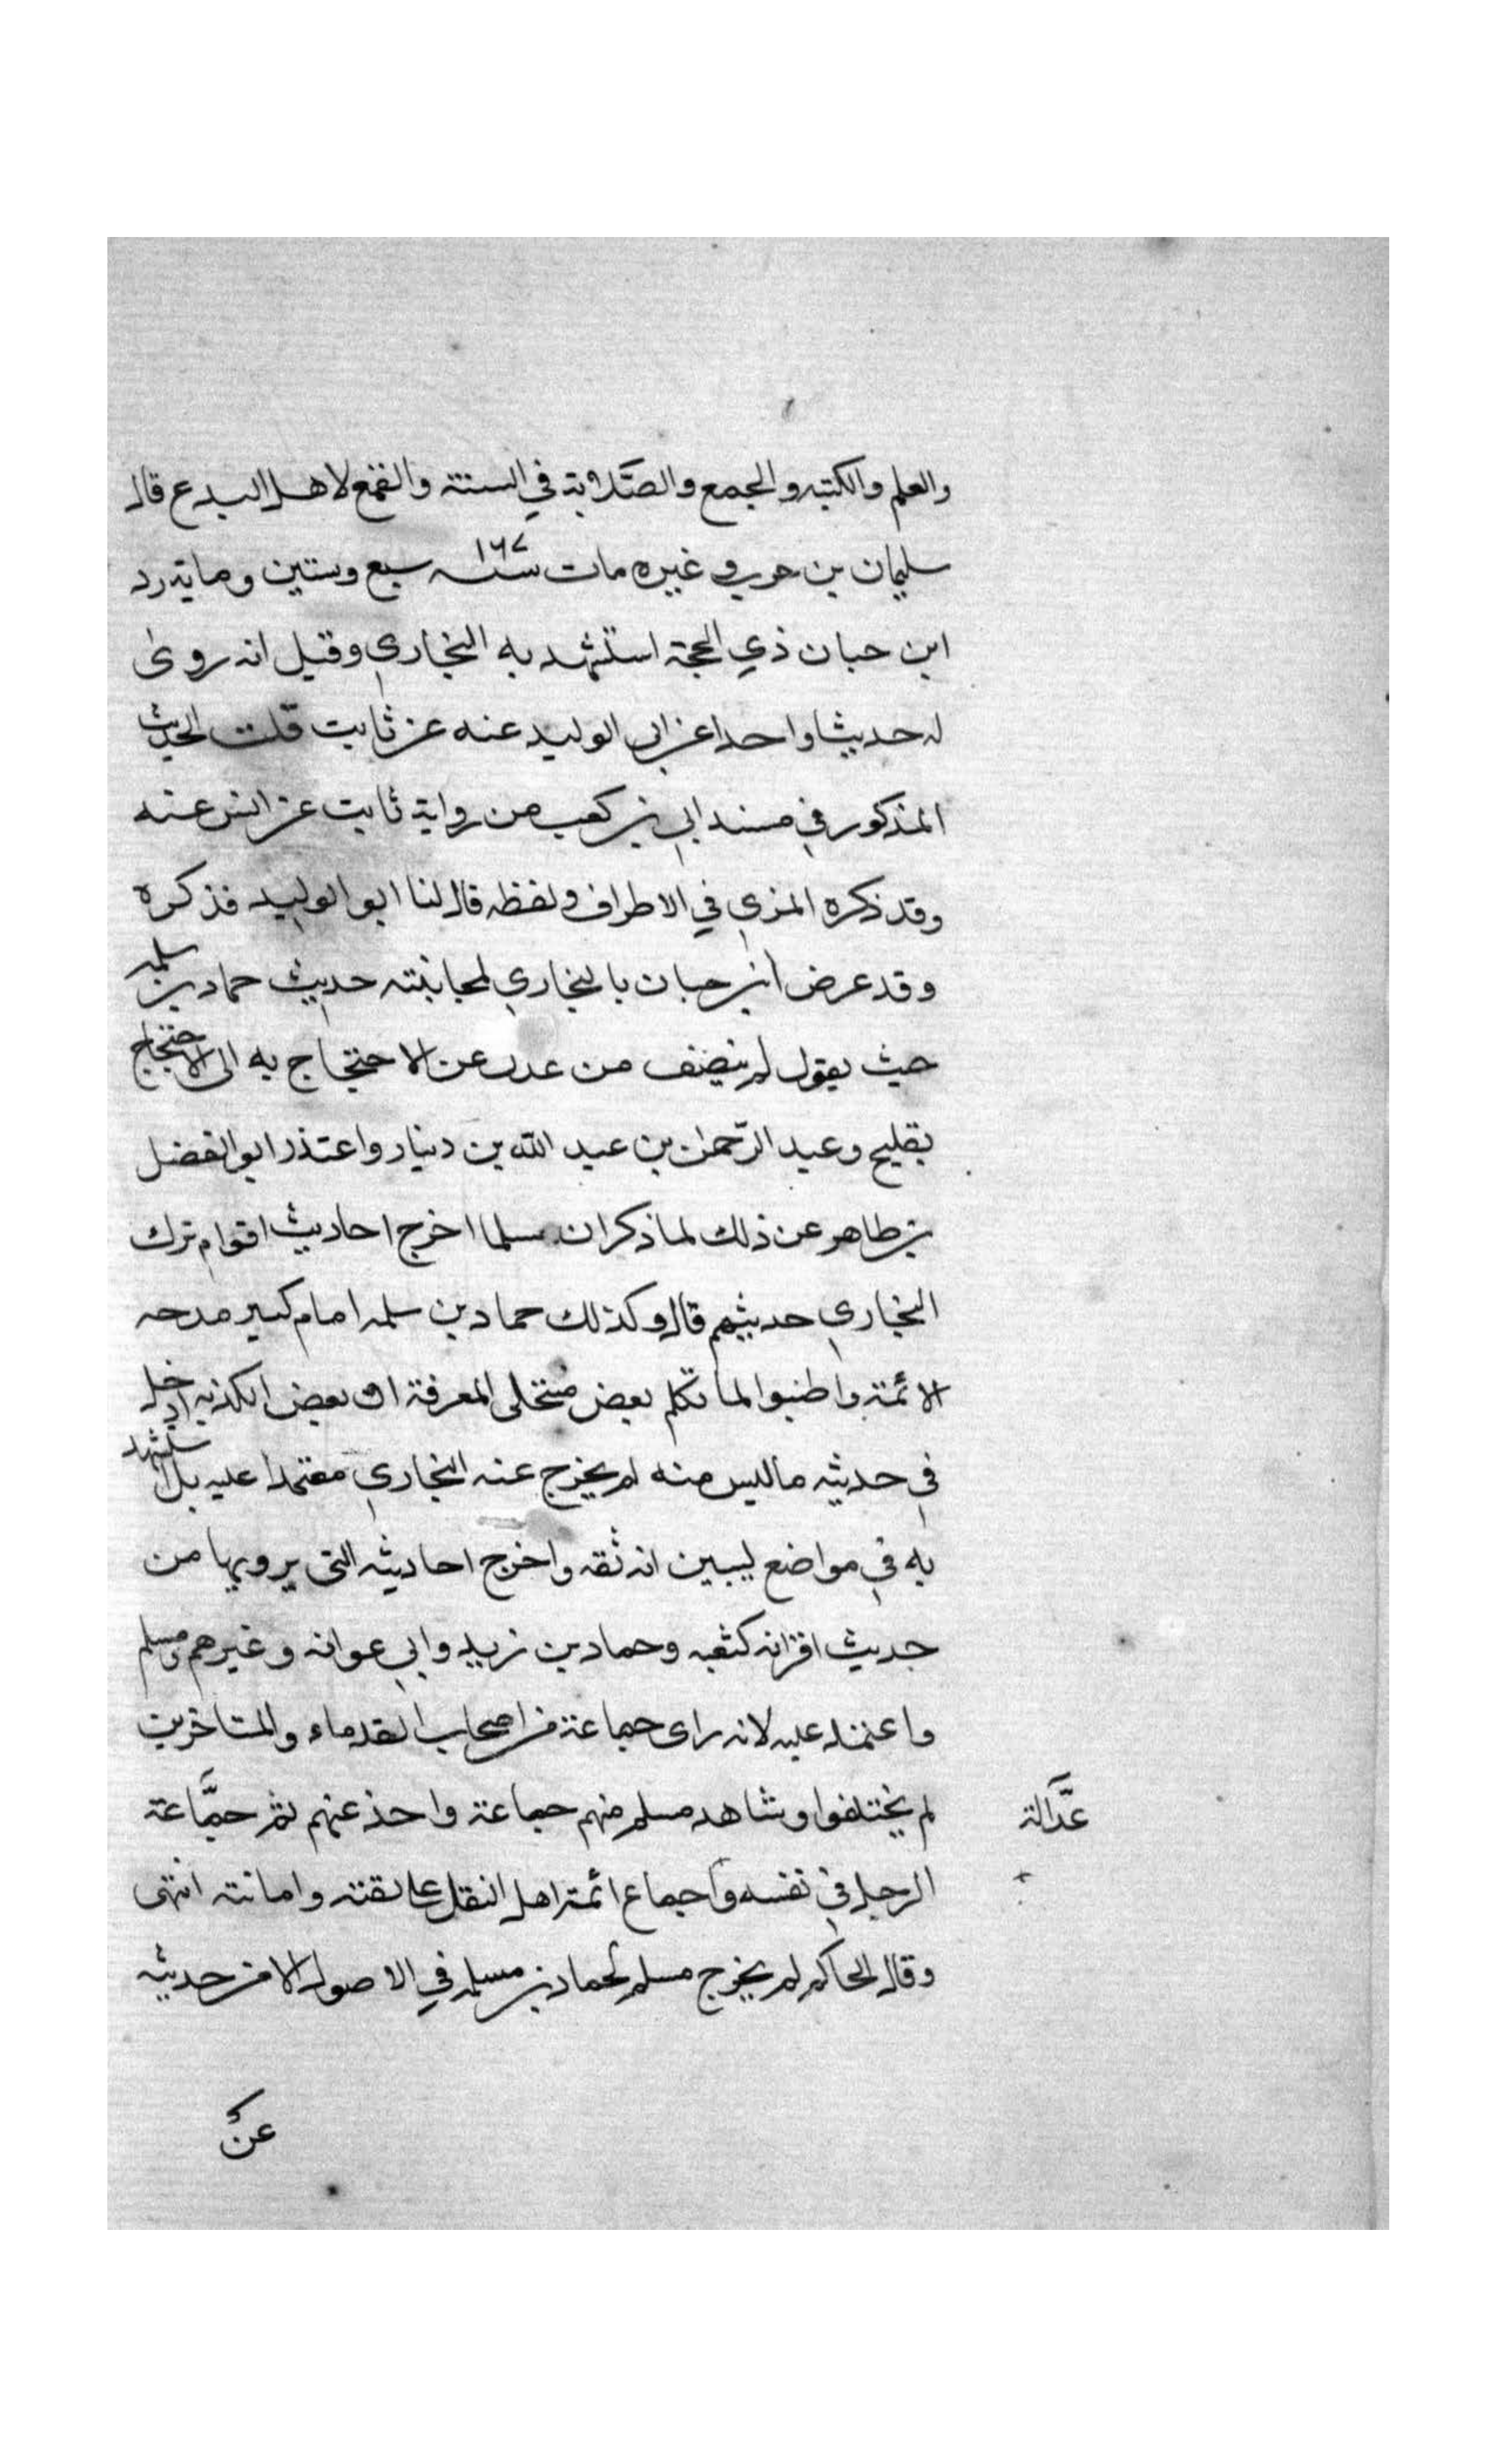 والعلم والكتبه والجمع والصَّلابة في السنة والقمع لاهل البدع قال
سليمان بن حرب وغيره مات سنة ١٦٧ سبع وستين وماية زد
ابن حبان ذي الحجة استشهد به البخاري وقيل انه روى
له حديثا واحدا عن ابي الوليد عنه عن ثابت قلت الحديث
المذكور في مسند ابي بن كعب من رواية ثابت عن انس عنه
وقد ذكره المزي في الاطراف ولفظه قال لنا ابو الوليد فذكره
وقد عرض ابن حبان بالبخاري لمجانبته حديث حماد بن سلمه
حيث يقول لم ينصف من عدل عن الاحتجاج به الى الاحتجاج
بفليح وعبد الرّحمن بن عبد الله بن دينار واعتذر ابو الفضل
بن طاهر عن ذلك لما ذكر ان مسلما اخرج احاديث اقوام ترك
البخاري حديثهم قال وكذلك حماد بن سلمه امام كبير مدحه
الائمة واطنبوا لما تكلم بعض منتحلى المعرفة ان بعض الكذبه ادخل
في حديثه ما ليس منه لم يخرج عنه البخاري معتمدا عليه بل استشهد
به في مواضع ليبين انه ثقه واخرج احاديثه التى يرويها من
حديث اقرانه كشعبه وحماد بن زيد وابي عوانه وغيرهم ومسلم
واعتمد عليه لانه راى جماعة من اصحاب القدماء والمتاخرين
لم يختلفوا وشاهد مسلم منهم جماعة واخذ عنهم ثم جمَّاعة
عَدَّالة
الرجل في نفسه واجماع ائمة اهل النقل على ثقته وامانته انتهى
وقال الحاكم لم يخرج مسلم لحماد بن مسلمه في الاصول الا من حديثه
عن